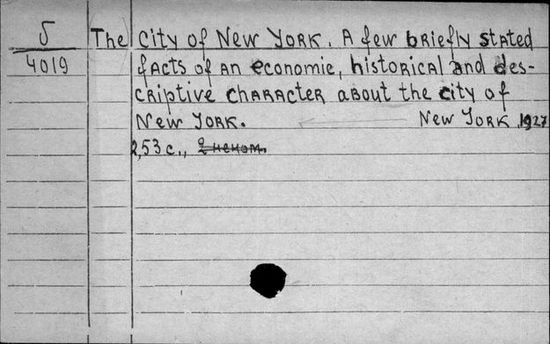 5
4019
The City of New York. A few briefly stated
facts of an economic, historical and des-
criptive character about the city of
New York. New York, 1927
2,53 с.,